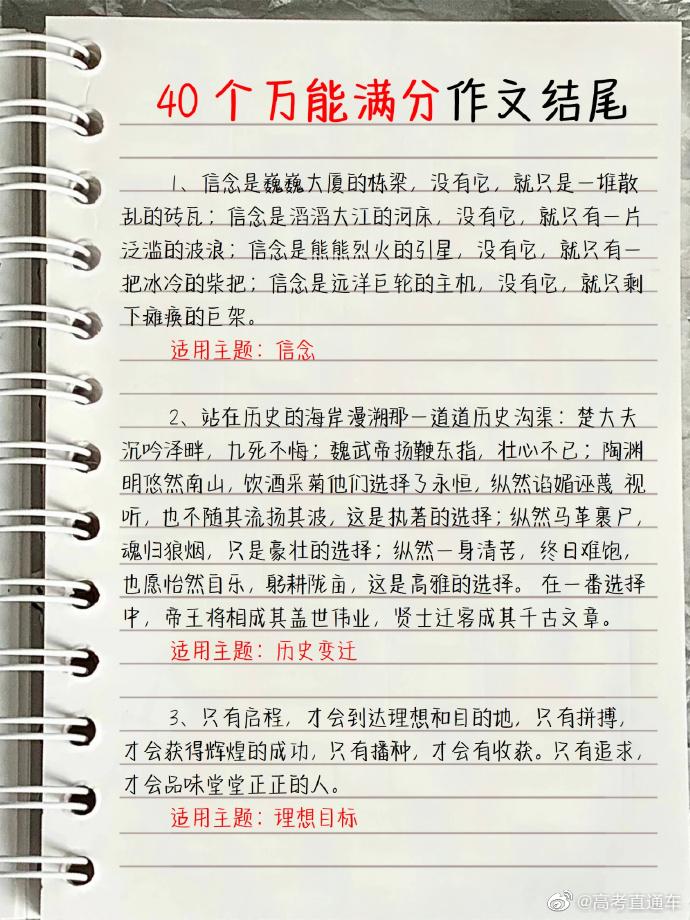 40个万能满分作文结尾
1、信念是巍巍大厦的栋梁，没有它，就只是一堆散
乱的砖瓦；信念是滔滔大江的河床，没有它，就只有一片
泛滥的波浪；信念是熊熊烈火的引星，没有它，就只有一
把冰冷的柴把；信念是远洋巨轮的主机，没有它，就只剩
下瘫痪的巨架。
适用主题：信念
2、站在历史的海岸漫溯那一道道历史沟渠：楚大夫
沉吟泽畔，九死不悔；魏武帝扬鞭东指，壮心不已；陶渊
明悠然南山，饮酒采菊他们选择了永恒，纵然谄媚诬蔑 视
听，也不随其流扬其波，这是执著的选择；纵然马革裹尸，
魂归狼烟，只是豪壮的选择；纵然一身清苦，终日难饱，
也愿怡然自乐，躬耕陇亩，这是高雅的选择。 在一番选择
中，帝王将相成其盖世伟业，贤士迁客成其千古文章。
适用主题：历史变迁
3、只有启程，才会到达理想和目的地，只有拼搏，
才会获得辉煌的成功，只有播种，才会有收获。只有追求，
才会品味堂堂正正的人。
适用主题：理想目标
@高考直通车